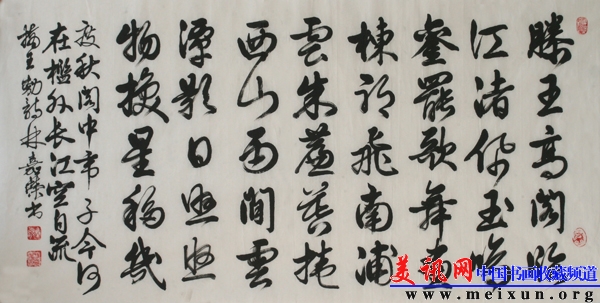 滕王高阁臨
江渚佩玉鳴
鸞罷歌舞畫
棟朝飛南浦
雲朱簾暮捲
西山雨閒雲
潭影日悠悠
物換星移幾
度秋阁中帝子今何
在檻外长江空自流
王勃詩林嘉榮书
美讯网 中国书画收藏频道
www.meixun.org